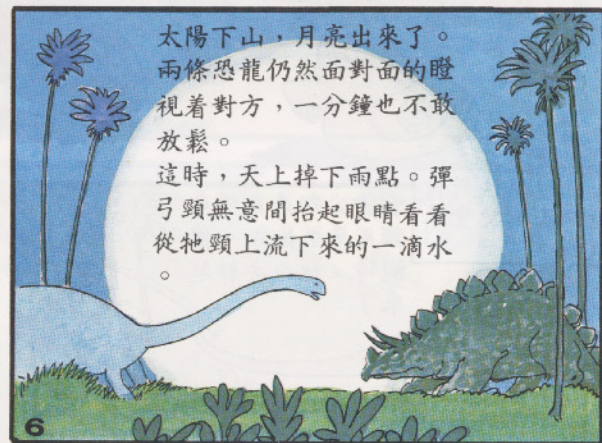 太陽下山，月亮出來了。
兩條恐龍仍然面對面的瞪
視着對方，一分鐘也不敢
放鬆。
這時，天上掉下雨點。彈
弓頸無意間抬起眼睛看看
從牠頸上流下來的一滴水
。
6